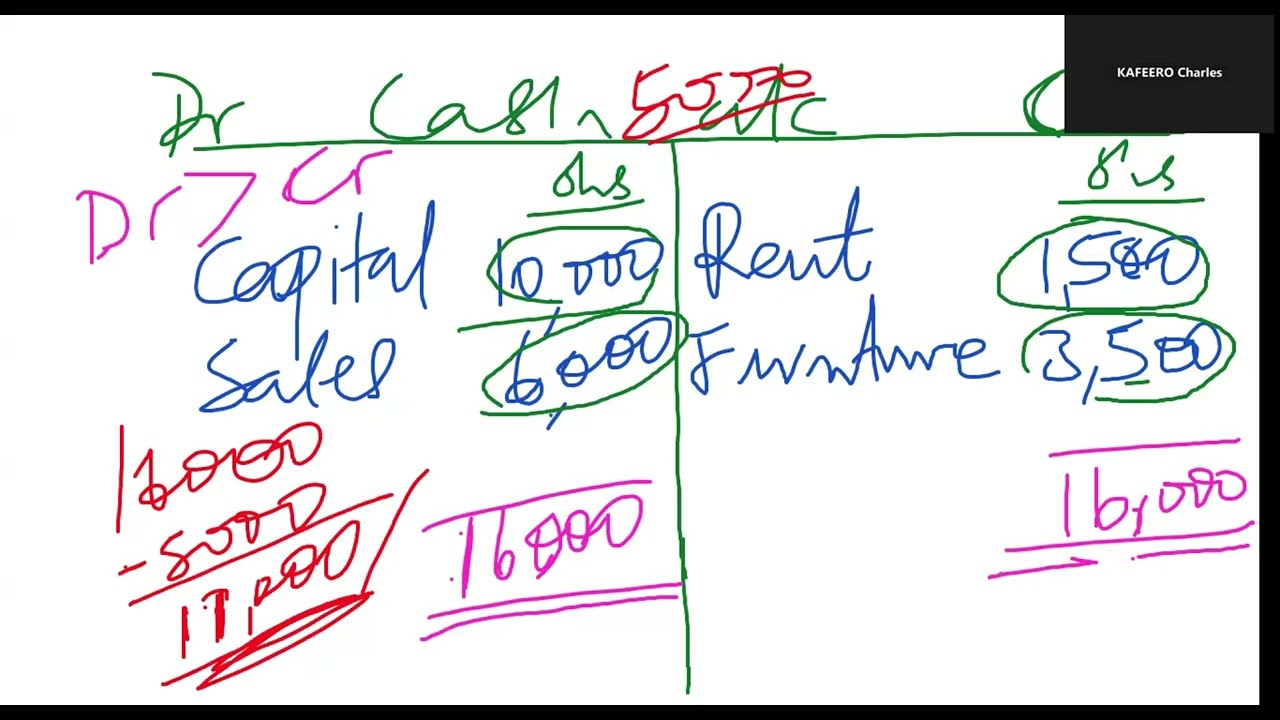 KAFEERO Charles
Dr Cash 5000 a/c C
Dr > Cr shs shs
Capital 10,000 Rent 1,500
Sales 6,000 Furniture 3,500
16000
-5000
11,000
16000 16,000